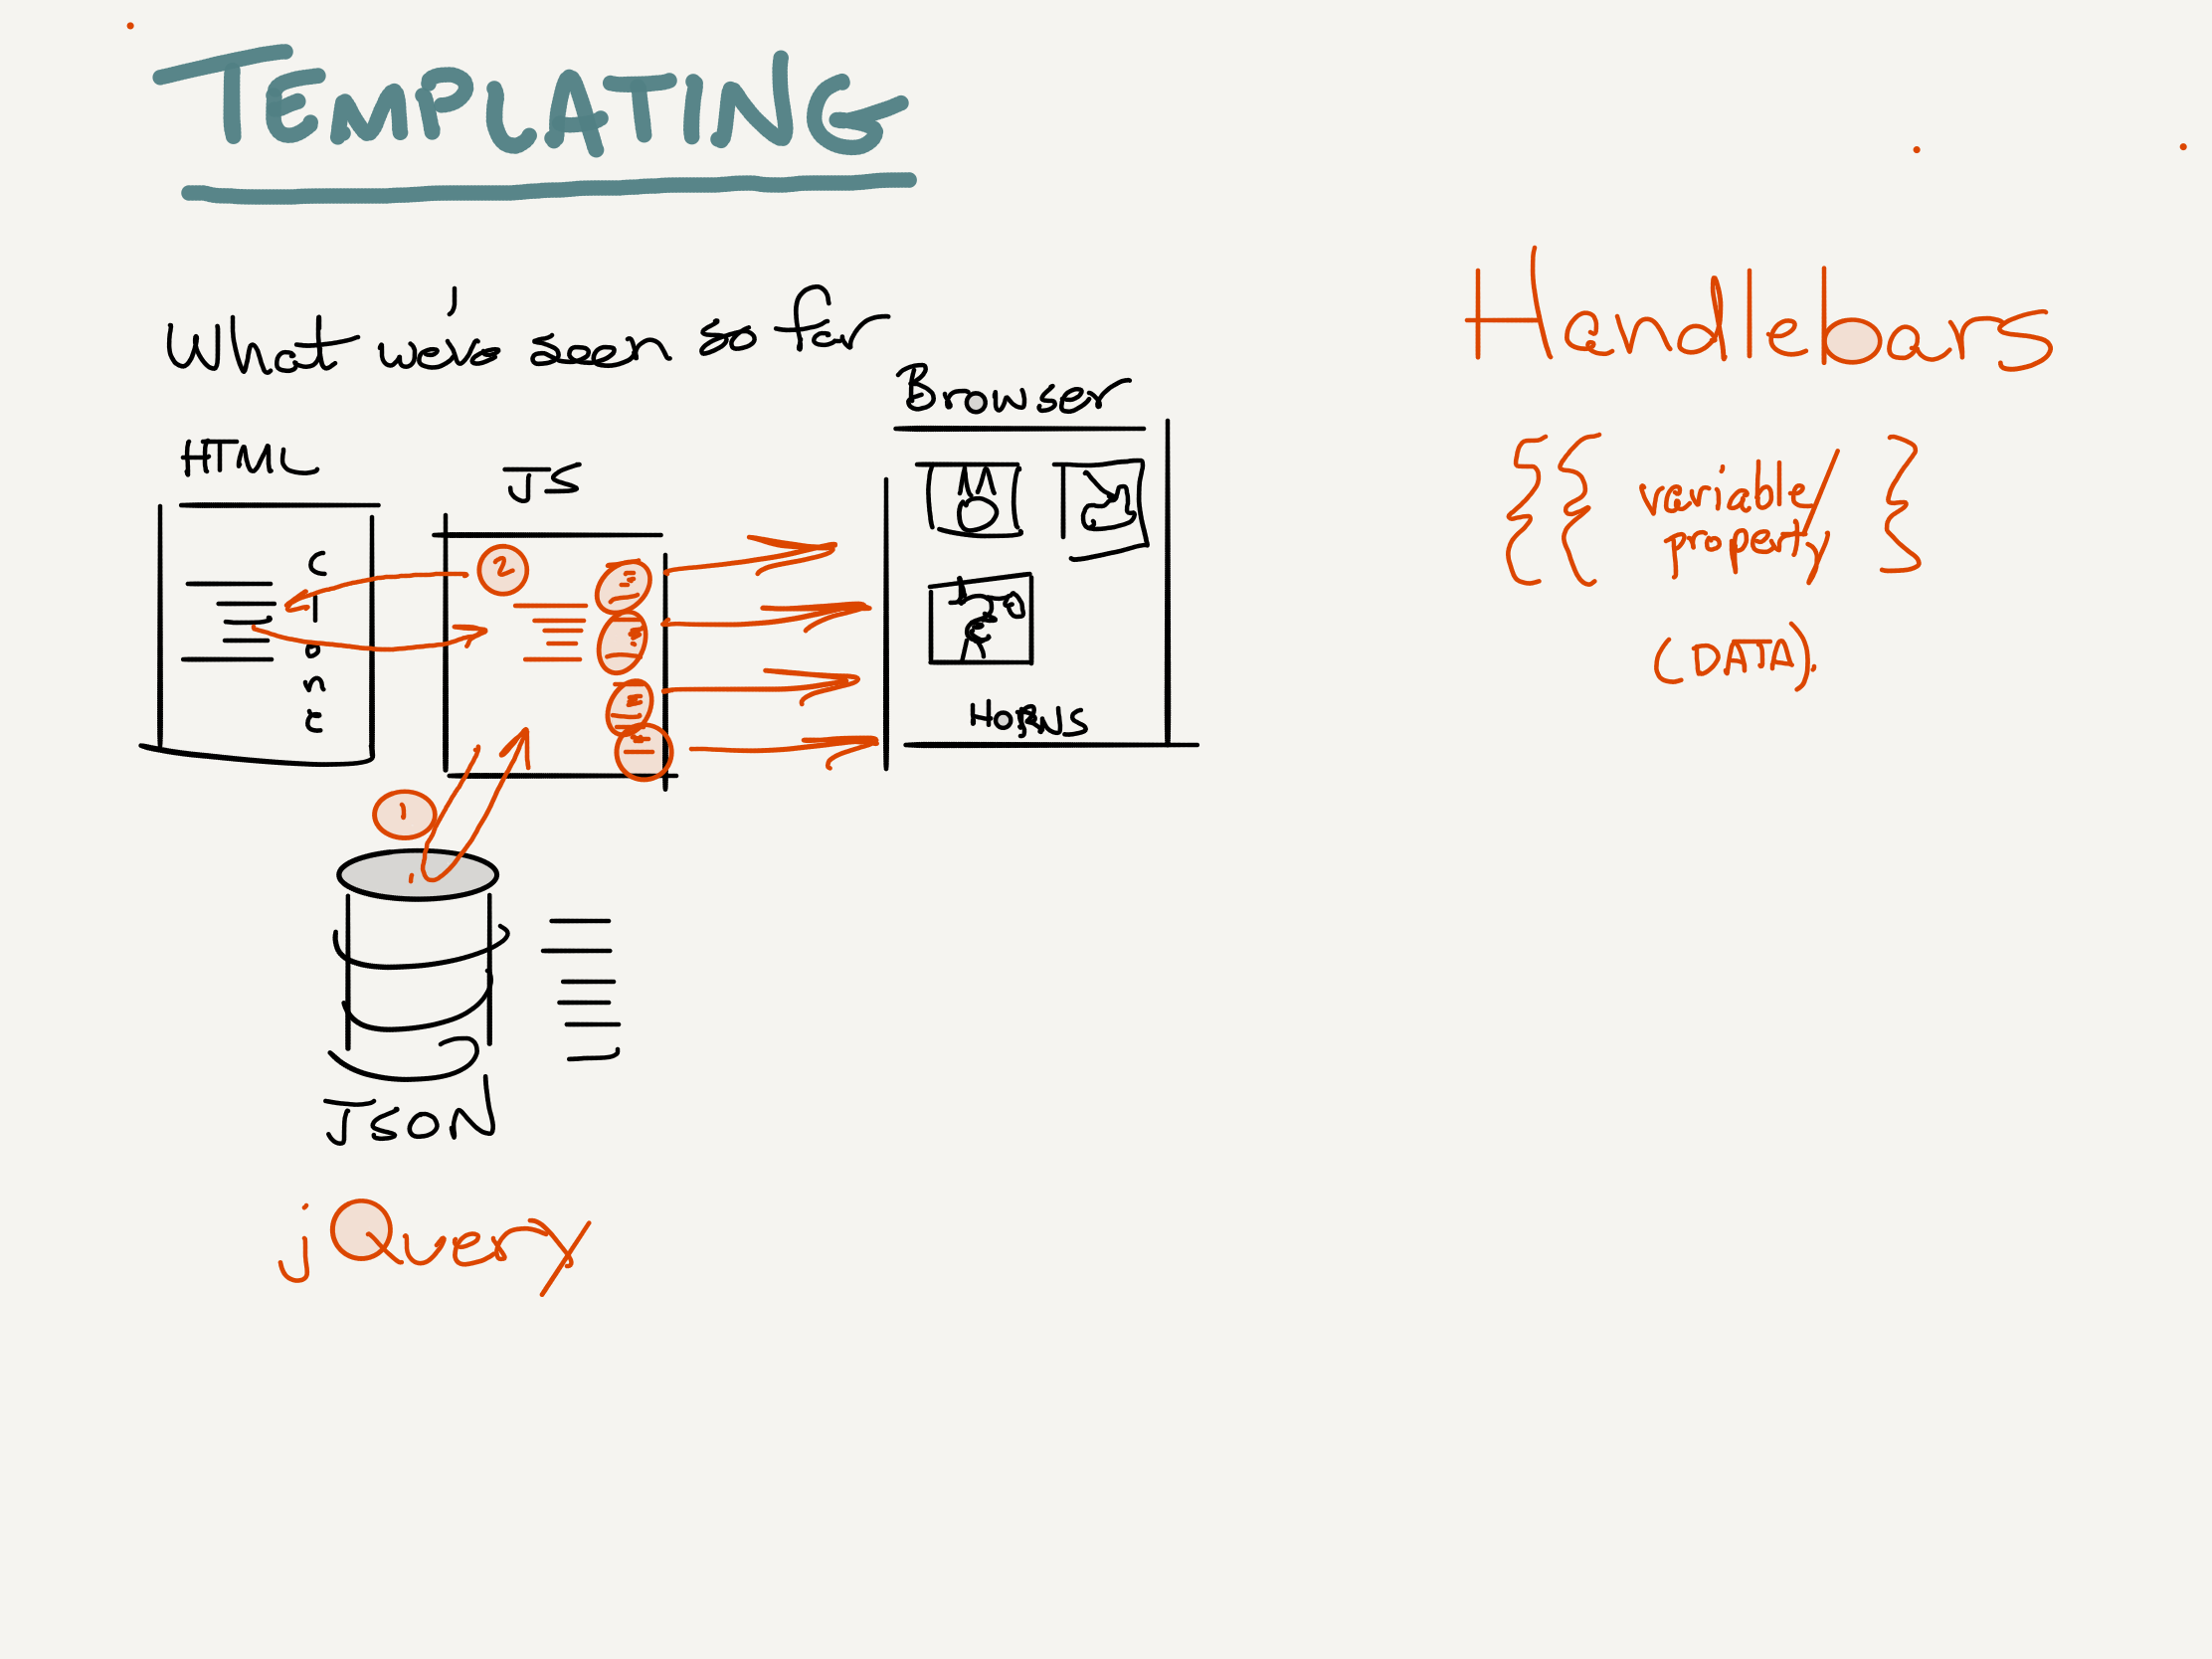 TEMPLATING
What we've seen so far
HTML
JS
Browser
Clone
2
HORNS
1
JSON
jQuery
Handlebars
{{ variable/ }
property
(DATA).